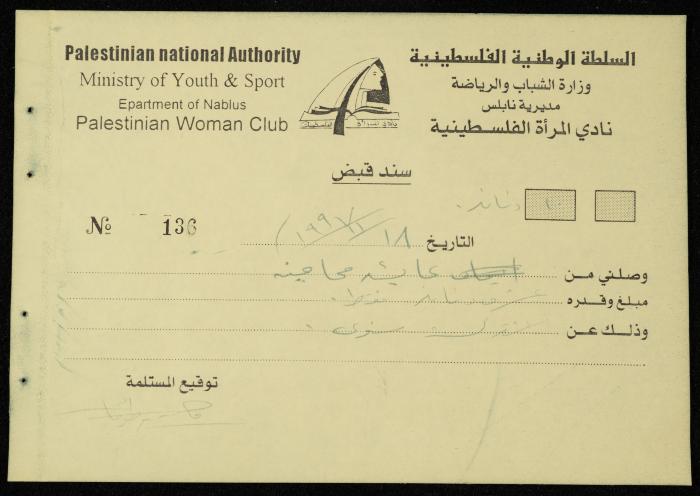 Palestinian national Authority
Ministry of Youth & Sport
Epartment of Nablus
Palestinian Woman Club
السلطة الوطنية الفلسطينية
وزارة الشباب والرياضة
مديرية نابلس
نادي المرأة الفلسطينية
سند قبض
١٠ دنانير
№ 136
التاريخ ١٨
وصلني من عائشة محاجنه
مبلغ وقدره
وذلك عن سنوي
توقيع المستلمة